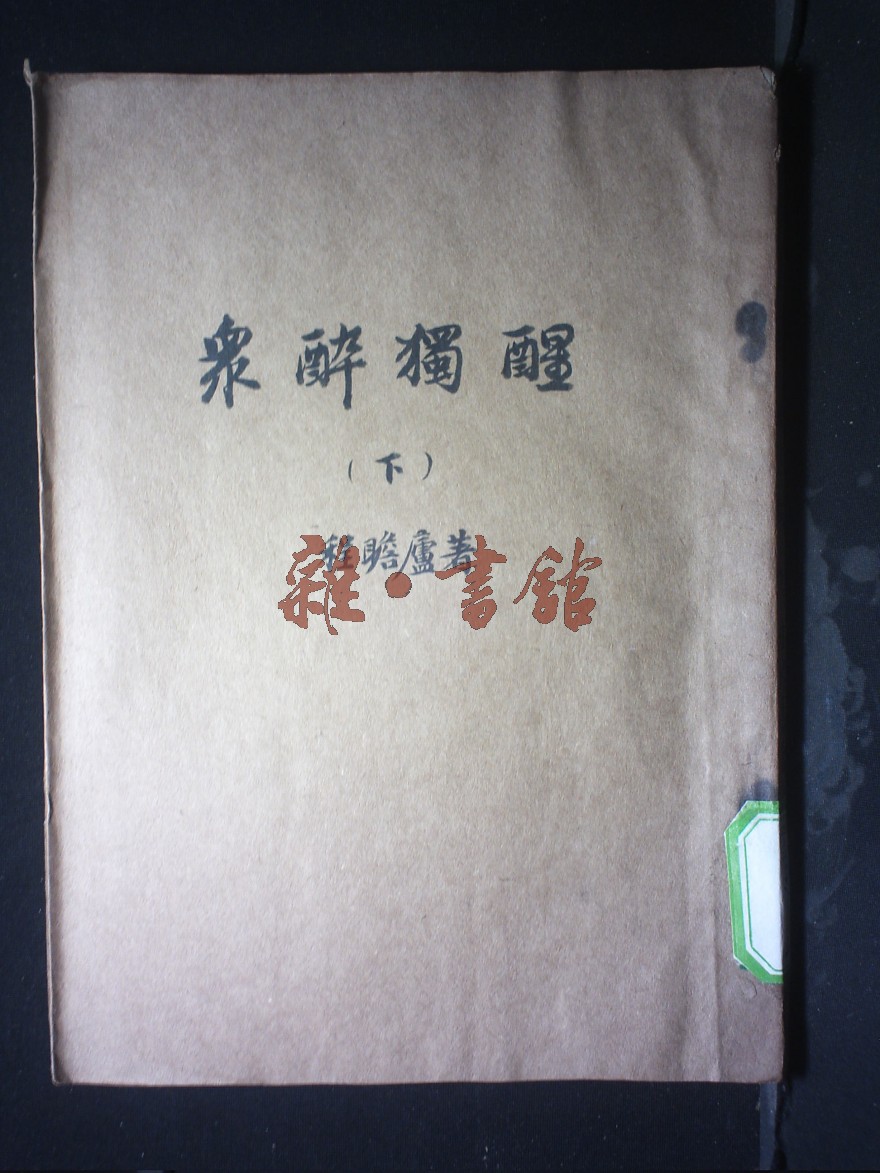 眾醉獨醒
(下)
程瞻廬著
雜·書館